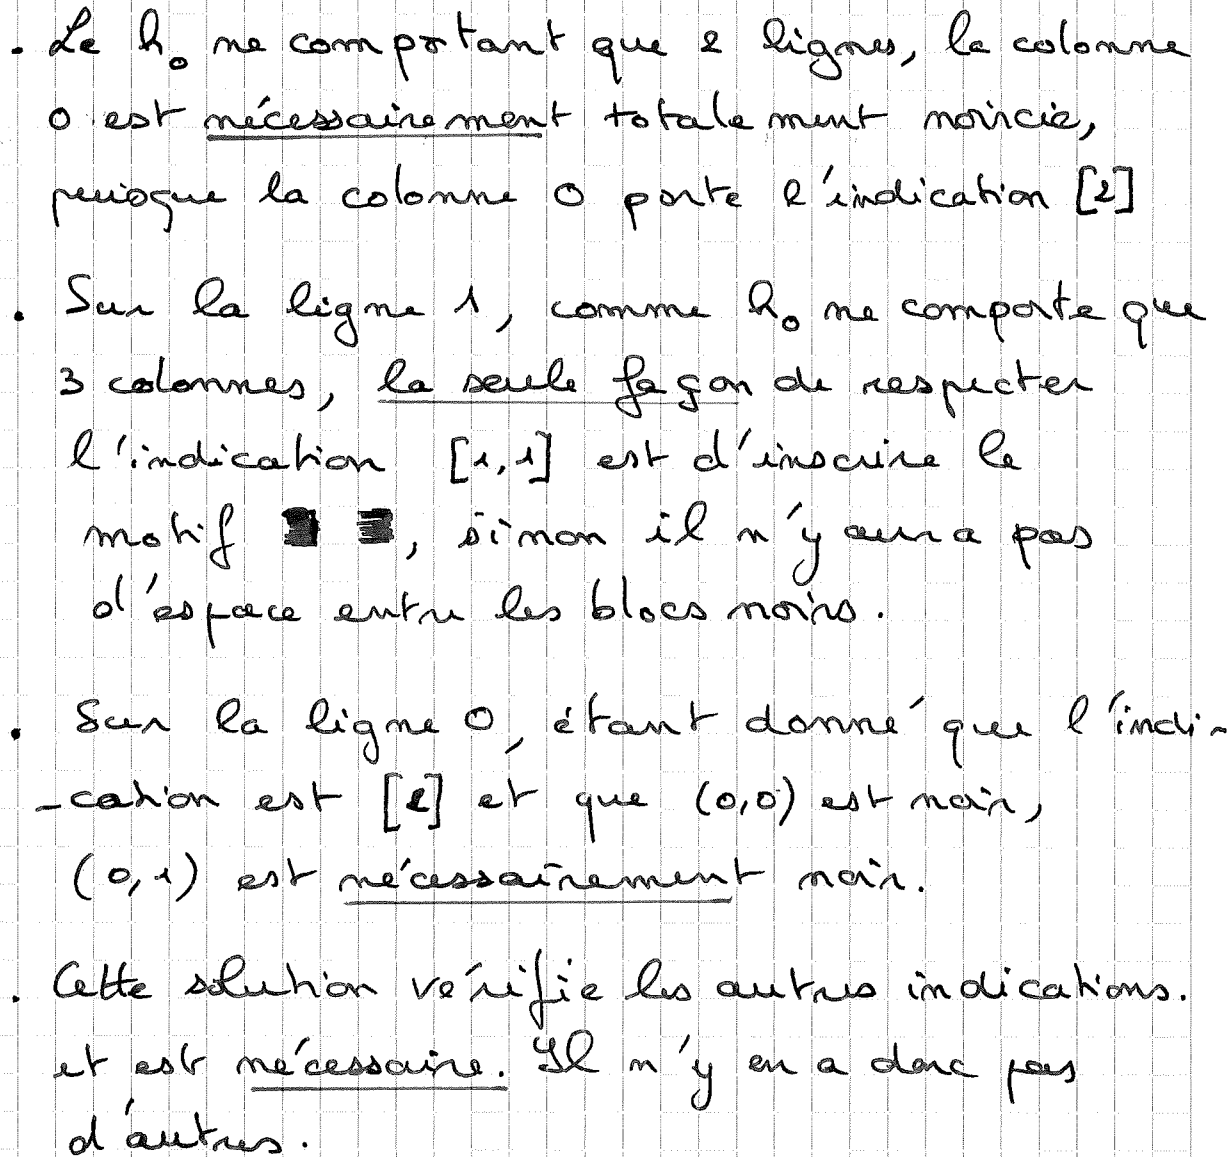 . Le h₀ ne comportant que 2 lignes, la colonne
0 est nécessairement totalement noircie,
puisque la colonne 0 porte l'indication [2]
. Sur la ligne 1, comme h₀ ne comporte que
3 colonnes, la seule façon de respecter
l'indication [1,1] est d'inscrire le
motif ■ ■, sinon il n'y aura pas
d'espace entre les blocs noirs.
. Sur la ligne 0, étant donné que l'indi-
-cation est [2] et que (0,0) est noir,
(0,1) est nécessairement noir.
. Cette solution vérifie les autres indications.
et est nécessaire. Il n'y en a donc pas
d'autres.